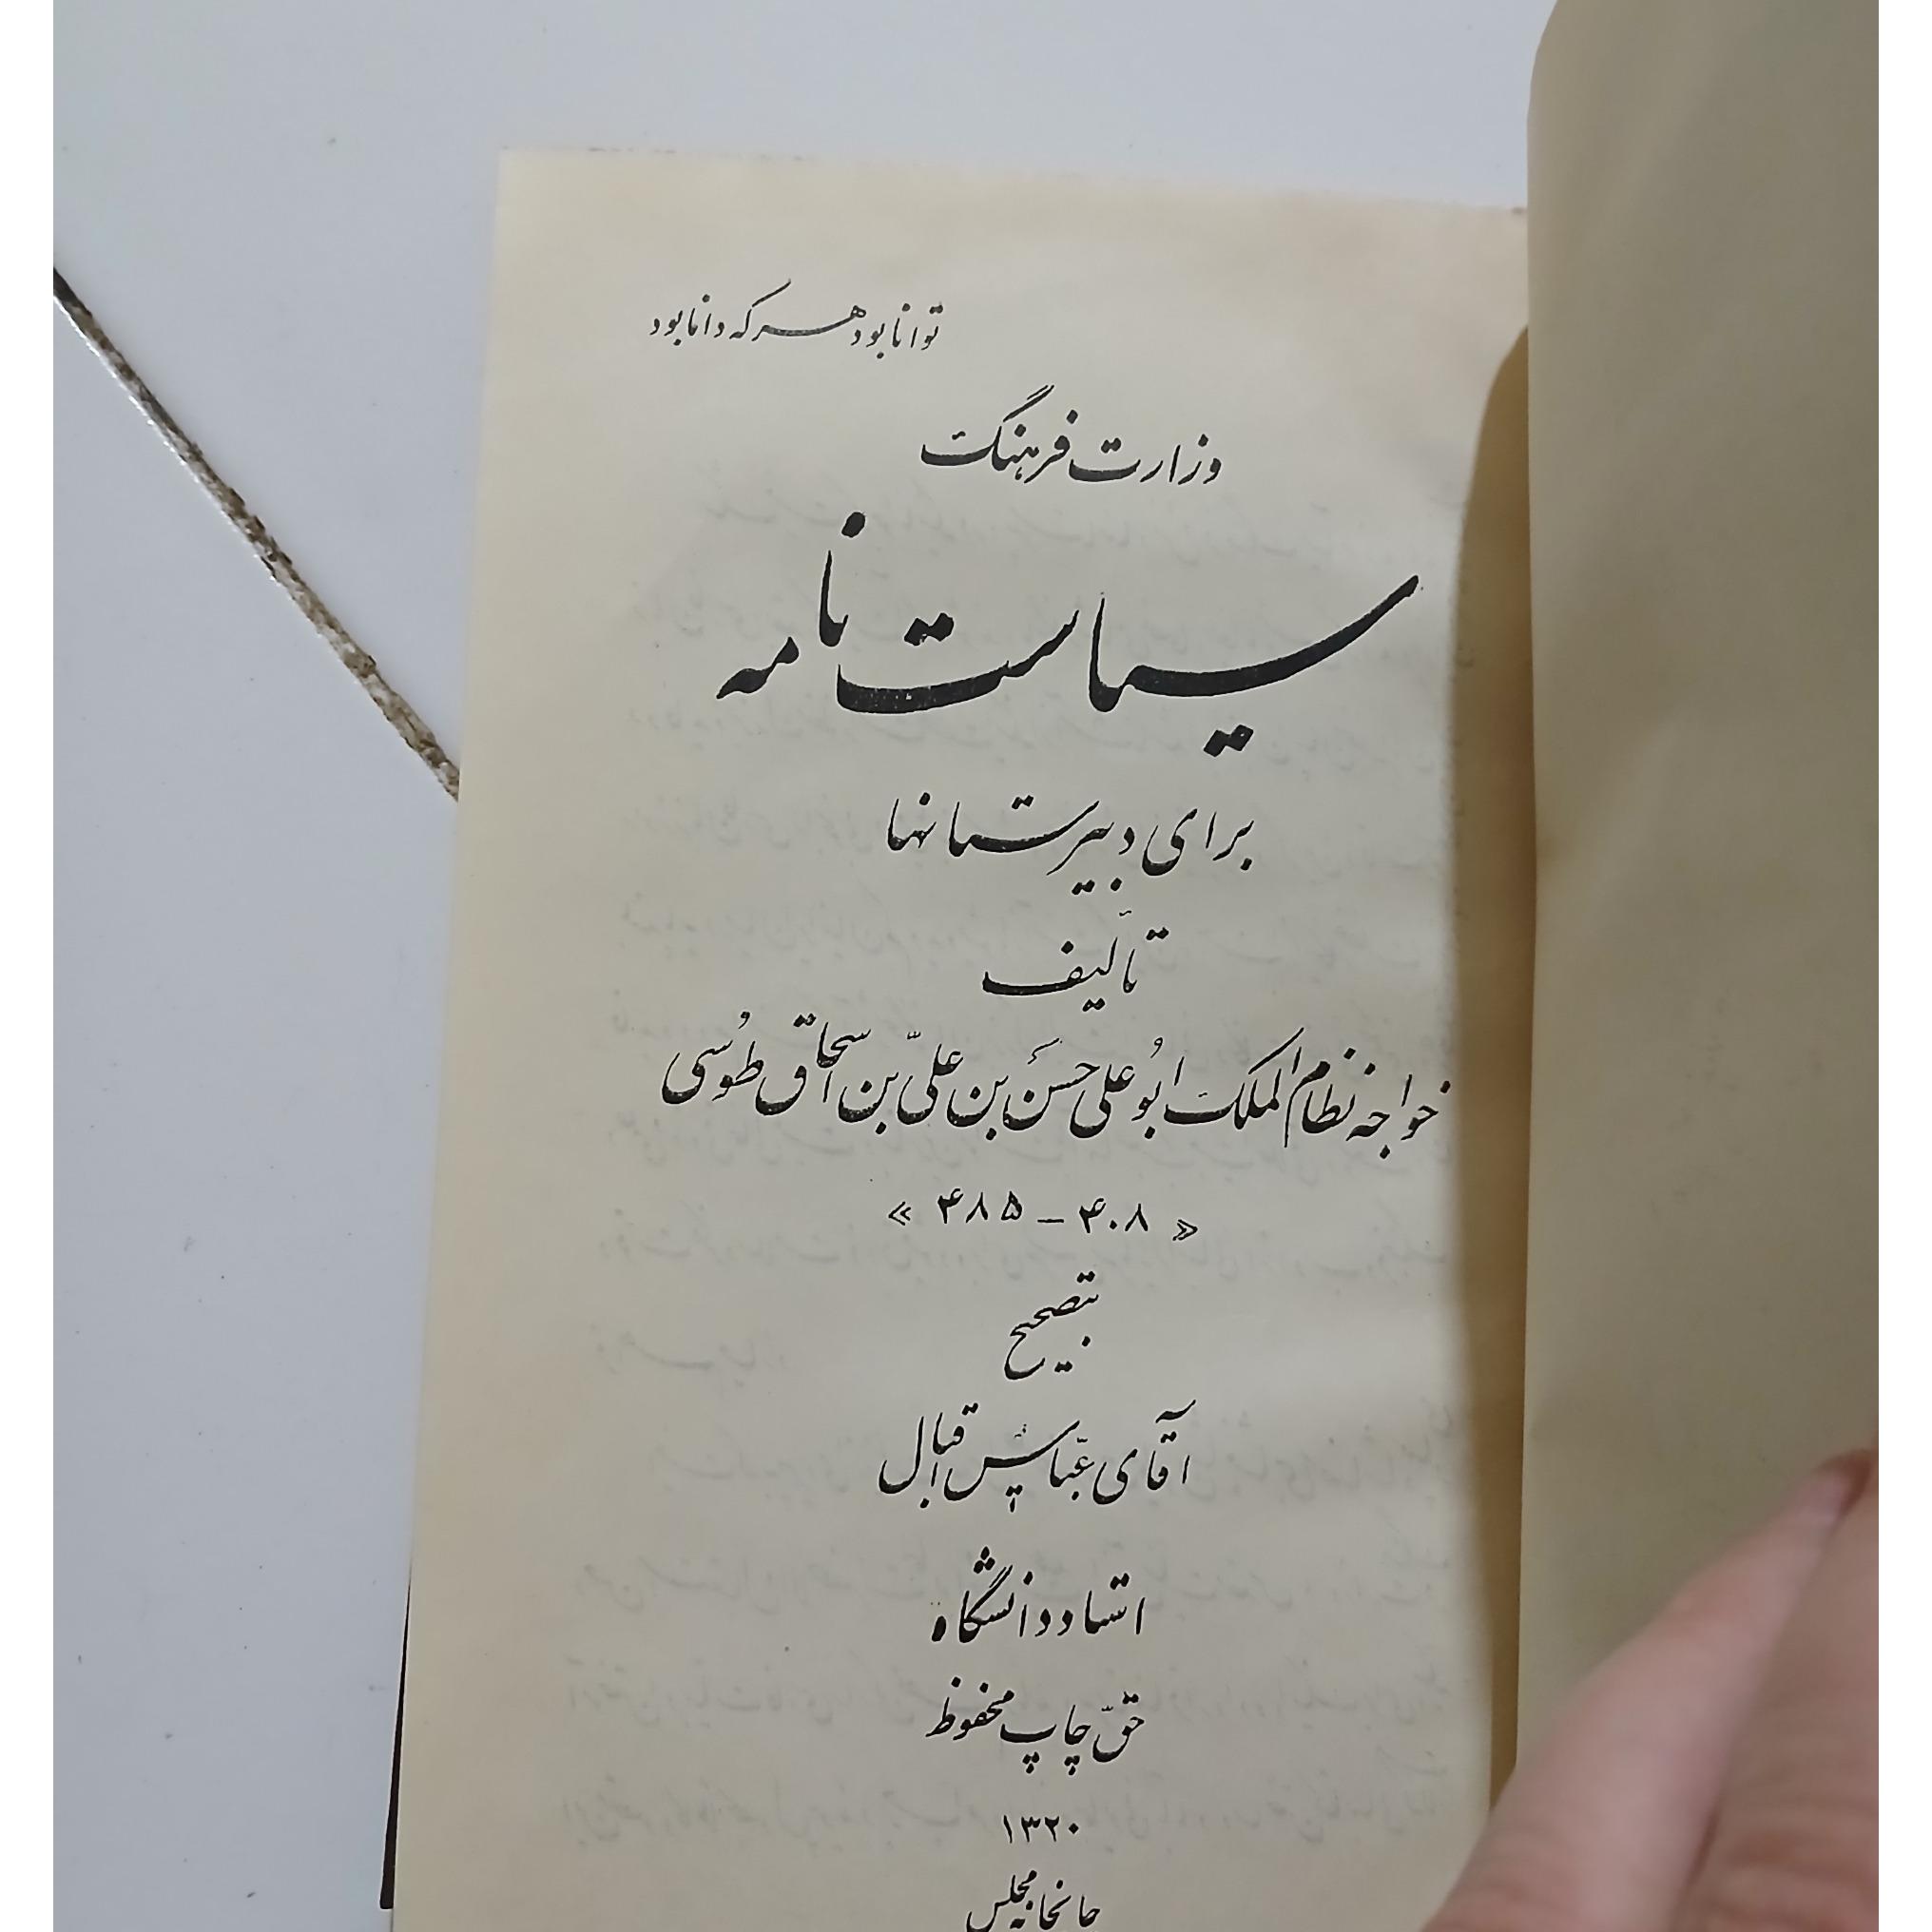 توانا بود هر که دانا بود
وزارت فرهنگ
سیاست نامه
برای دبیرستانها
تألیف
خواجه نظام الملک ابُو علی حسَن بن علیّ بن اسحاق طوُسی
« ۴۰۸ - ۴۸۵ »
بتصحیح
آقای عبّاس اقبال
استاد دانشگاه
حقّ چاپ محفوظ
۱۳۲۰
چاپخانه مجلس